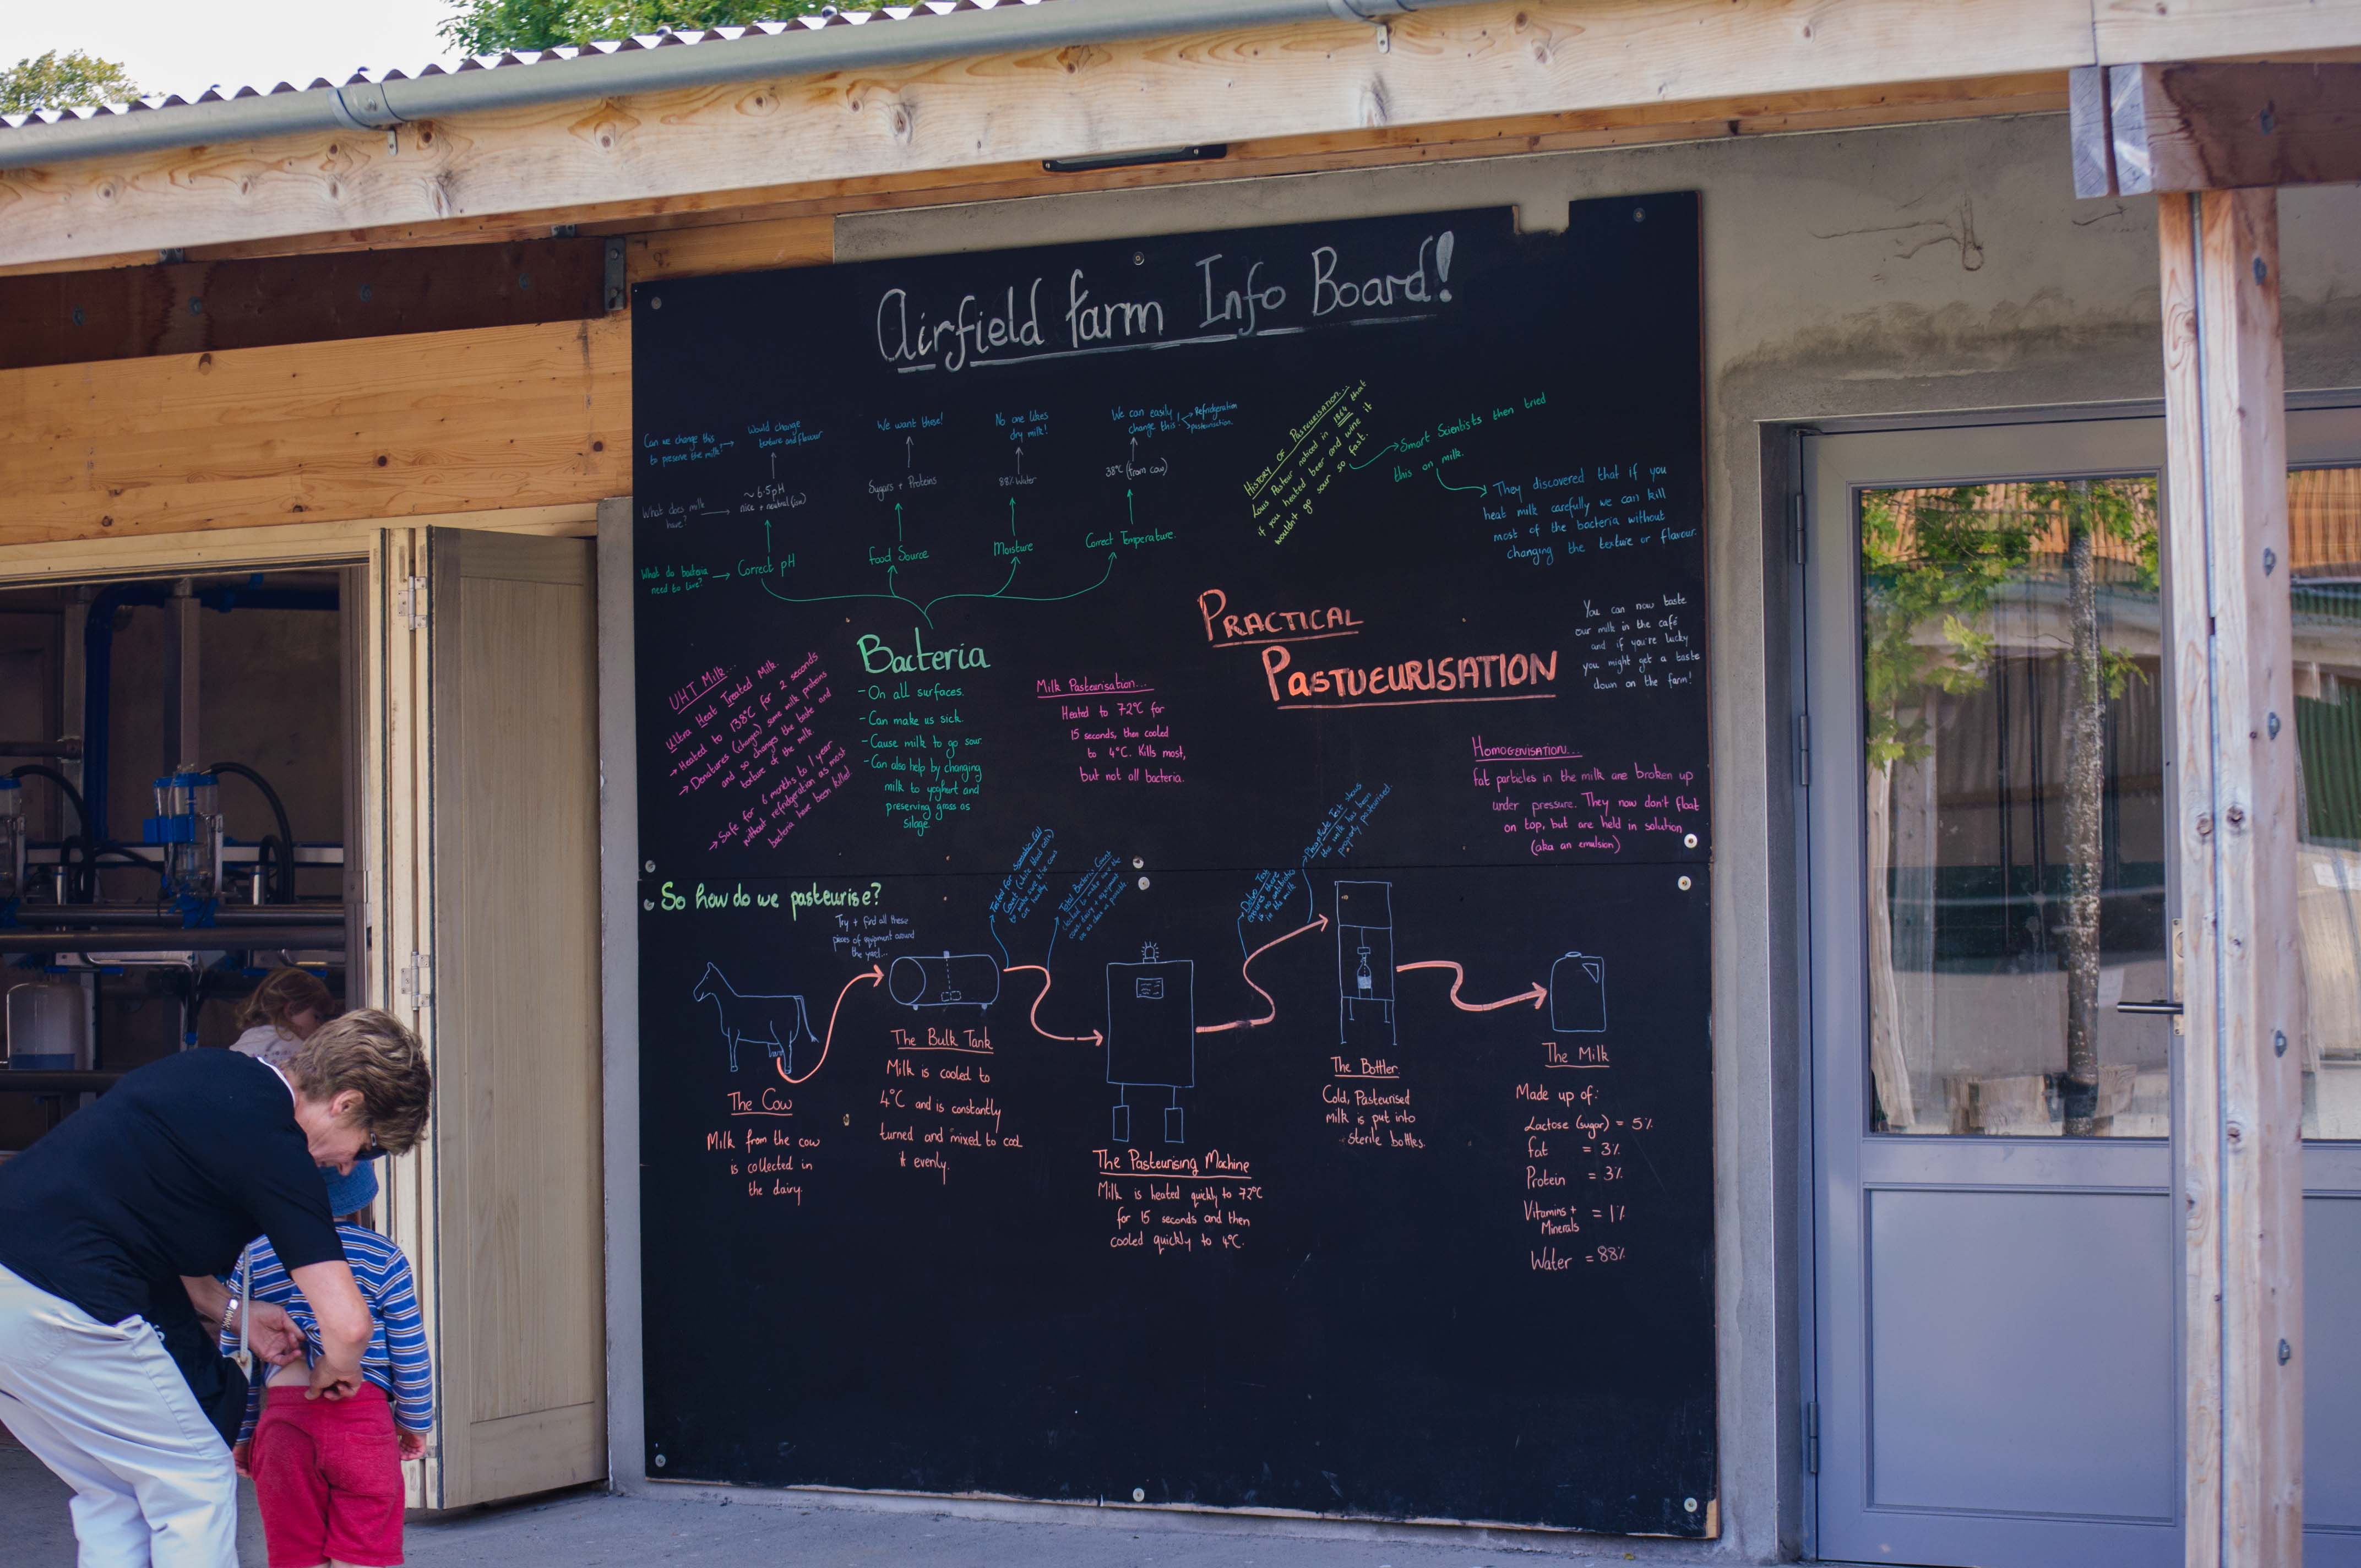 Airfield Farm Info Board!
Can we change this
to preserve the milk?
Would change
texture and flavour
We want these!
No one likes
dry milk!
We can easily
change this!
Refridgeration
pasteurisation.
What does milk
have?
~6.5pH
nice + neutral (ish)
Sugars + Proteins
88% Water
38°C (from cow)
What do bacteria
need to live?
Correct pH
Food Source
Moisture
Correct Temperature.
History of Pasteurisation...
Louis Pasteur noticed in 1864 that
if you heated beer and wine it
wouldn't go sour so fast.
Smart Scientists then tried
this on milk.
They discovered that if you
heat milk carefully we can kill
most of the bacteria without
changing the texture or flavour.
Practical
Pastueurisation
You can now taste
our milk in the café
and if you're lucky
you might get a taste
down on the farm!
UHT Milk...
Ultra Heat Treated Milk.
→ Heated to 138°C for 2 seconds
→ Denatures (changes) some milk proteins
and so changes the taste and
texture of the milk.
→ Safe for 6 months to 1 year
without refridgeration as most
bacteria have been killed.
Bacteria
- On all surfaces.
- Can make us sick.
- Cause milk to go sour
- Can also help by changing
milk to yoghurt and
preserving grass as
silage.
Milk Pasteurisation...
Heated to 72°C for
15 seconds, then cooled
to 4°C. Kills most,
but not all bacteria.
Homogenisation...
Fat particles in the milk are broken up
under pressure. They now don't float
on top, but are held in solution
(aka an emulsion)
So how do we pasteurise?
Try + find all these
pieces of equipment around
the yard...
Tested for Somatic Cell
Count (white blood cells)
to make sure the cows
are healthy
Total Bacteria Count
Delvo Test
ensures there
is no antibiotic
in the milk
Phosphatase Test shows
the milk has been
properly pasteurised.
The Cow
Milk from the cow
is collected in
the dairy.
The Bulk Tank
Milk is cooled to
4°C and is constantly
turned and mixed to cool
it evenly.
The Pasteurising Machine
Milk is heated quickly to 72°C
for 15 seconds and then
cooled quickly to 4°C.
The Bottler
Cold, Pasteurised
Milk is put into
sterile bottles.
The Milk
Made up of:
Lactose (sugar) = 5%
Fat = 3%
Protein = 3%
Vitamins +
Minerals = 1%
Water = 88%